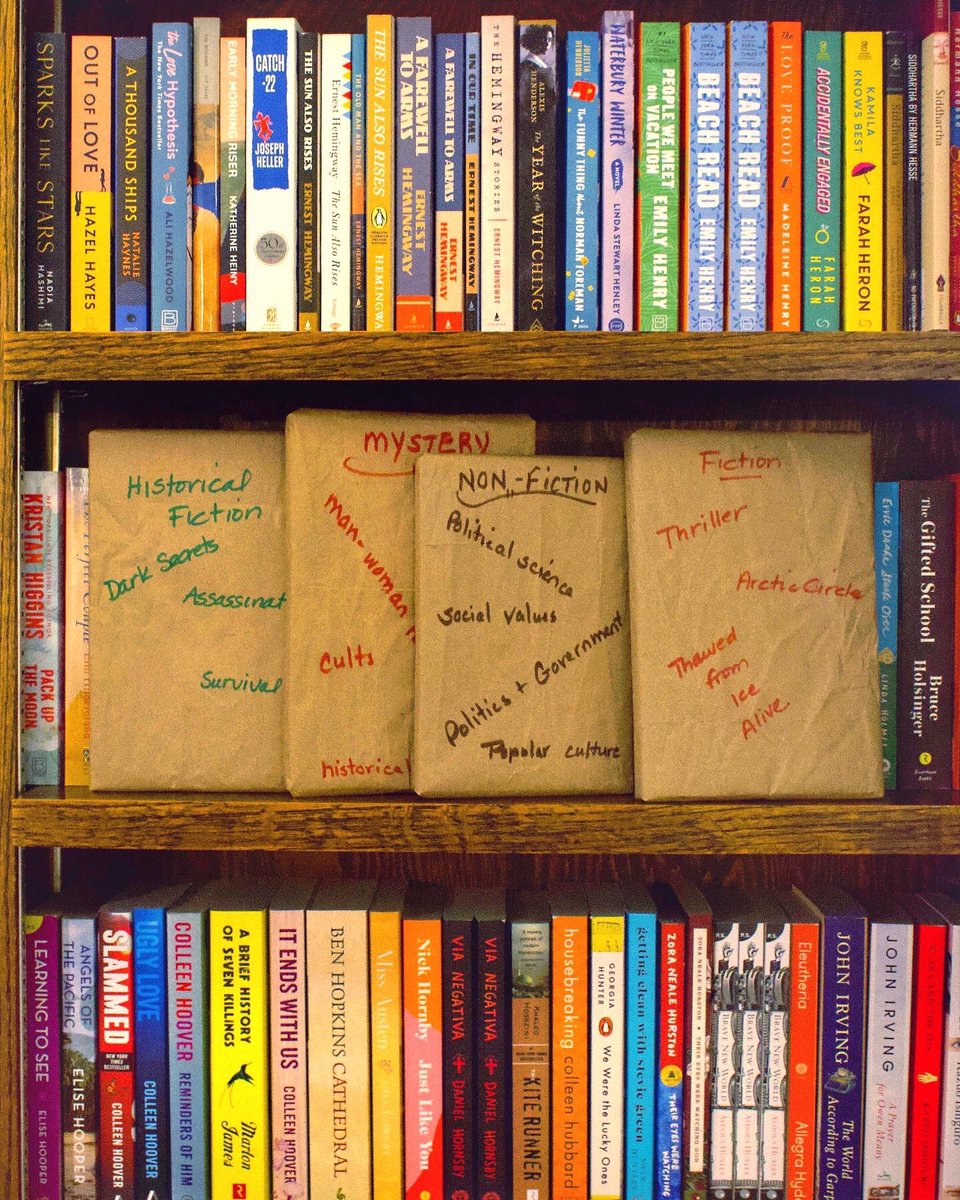 SPARKS LIKE STARS NADIA HASHIMI
OUT OF LOVE HAZEL HAYES
A THOUSAND SHIPS NATALIE HAYNES
the Love Hypothesis The New York Times Bestseller ALI HAZELWOOD
EARLY MORNING RISER KATHERINE HEINY
CATCH-22 JOSEPH HELLER
THE SUN ALSO RISES ERNEST HEMINGWAY
Ernest Hemingway The Sun Also Rises
THE OLD MAN AND THE SEA ERNEST HEMINGWAY
THE SUN ALSO RISES HEMINGWAY
A FAREWELL TO ARMS ERNEST HEMINGWAY
A FAREWELL TO ARMS ERNEST HEMINGWAY
IN OUR TIME ERNEST HEMINGWAY
THE HEMINGWAY STORIES ERNEST HEMINGWAY
ALEXIS HENDERSON THE YEAR of the WITCHING
JULIETTA HENDERSON THE FUNNY THING About NORMAN FOREMAN
WATERBURY WINTER A NOVEL LINDA STEWART HENLEY
PEOPLE WE MEET ON VACATION EMILY HENRY
BEACH READ EMILY HENRY
BEACH READ EMILY HENRY
The LOVE PROOF MADELEINE HENRY
ACCIDENTALLY ENGAGED FARAH HERON
KAMILA KNOWS BEST FARAH HERON
Siddhartha
SIDDHARTHA BY HERMANN HESSE
Siddhartha
KRISTAN HIGGINS PACK UP THE MOON
Historical
Fiction
Dark Secrets
Assassinat
Survival
MYSTERY
man-woman
cults
historical
NON-FICTION
Political science
social values
Politics + Government
Popular culture
Fiction
Thriller
Arctic Circle
Thawed
from
ice
Alive
Evvie Drake Starts Over LINDA HOLMES
The Gifted School Bruce Holsinger
LEARNING TO SEE ELISE HOOPER
ANGELS OF THE PACIFIC ELISE HOOPER
SLAMMED COLLEEN HOOVER
UGLY LOVE COLLEEN HOOVER
COLLEEN HOOVER REMINDERS OF HIM
A BRIEF HISTORY OF SEVEN KILLINGS Marlon James
IT ENDS WITH US COLLEEN HOOVER
BEN HOPKINS CATHEDRAL
Miss Austen
Nick Hornby Just Like You
VIA NEGATIVA DANIEL HORNSBY
VIA NEGATIVA DANIEL HORNSBY
KHALED HOSSEINI THE KITE RUNNER
housebreaking colleen hubbard
GEORGIA HUNTER We Were the Lucky Ones
getting clean with stevie green
ZORA NEALE HURSTON THEIR EYES WERE WATCHING
ZORA NEALE HURSTON THEIR EYES WERE WATCHING GOD
P.S. BRAVE NEW WORLD
P.S. BRAVE NEW WORLD
P.S. BRAVE NEW WORLD
Eleutheria Allegra Hyd
JOHN IRVING The World According to Garp
JOHN IRVING A Prayer for Owen Meany